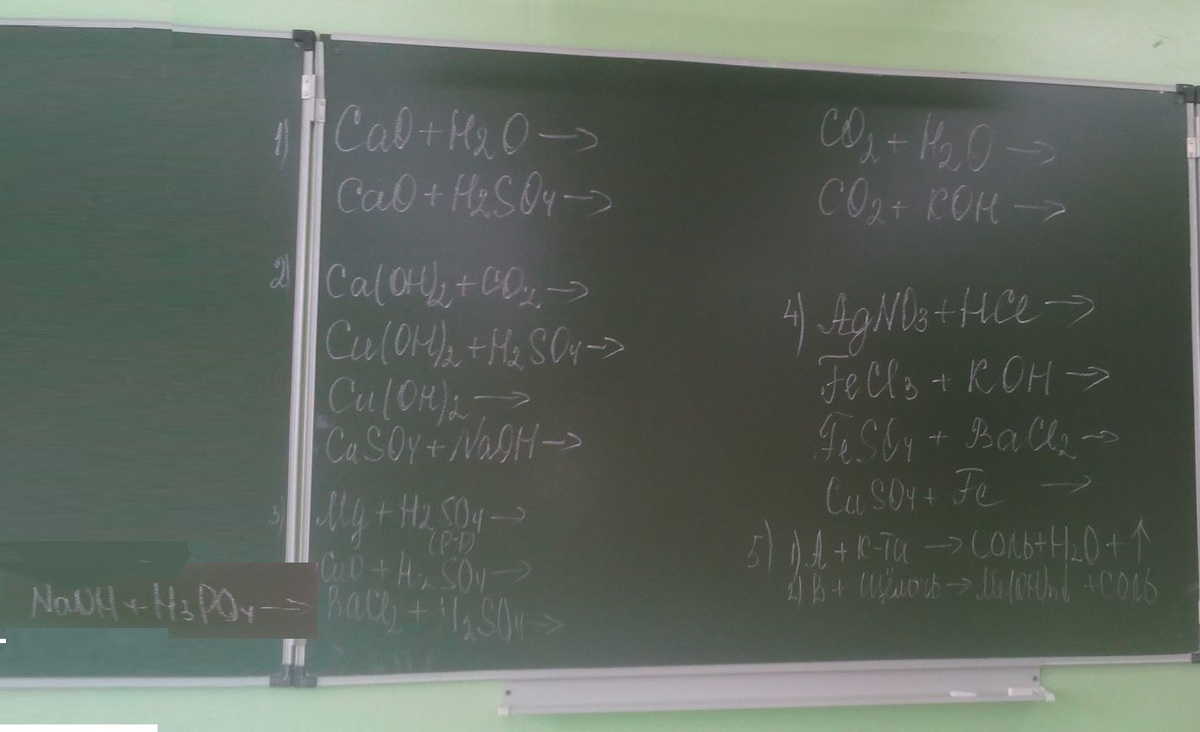 1) CaO + H2O →
CaO + H2SO4 →
2) Ca(OH)2 + CO2 →
Cu(OH)2 + H2SO4 →
Cu(OH)2 →
CuSO4 + NaOH →
3) Mg + H2SO4 →
(р-р)
CuO + H2SO4 →
BaCl2 + H2SO4 →
NaOH + H3PO4 →
CO2 + H2O →
CO2 + KOH →
4) AgNO3 + HCl →
FeCl3 + KOH →
FeSO4 + BaCl2 →
CuSO4 + Fe →
5) 1) А + к-та → соль + H2O + ↑
2) В + щёлочь → Me(OH)n↓ + соль